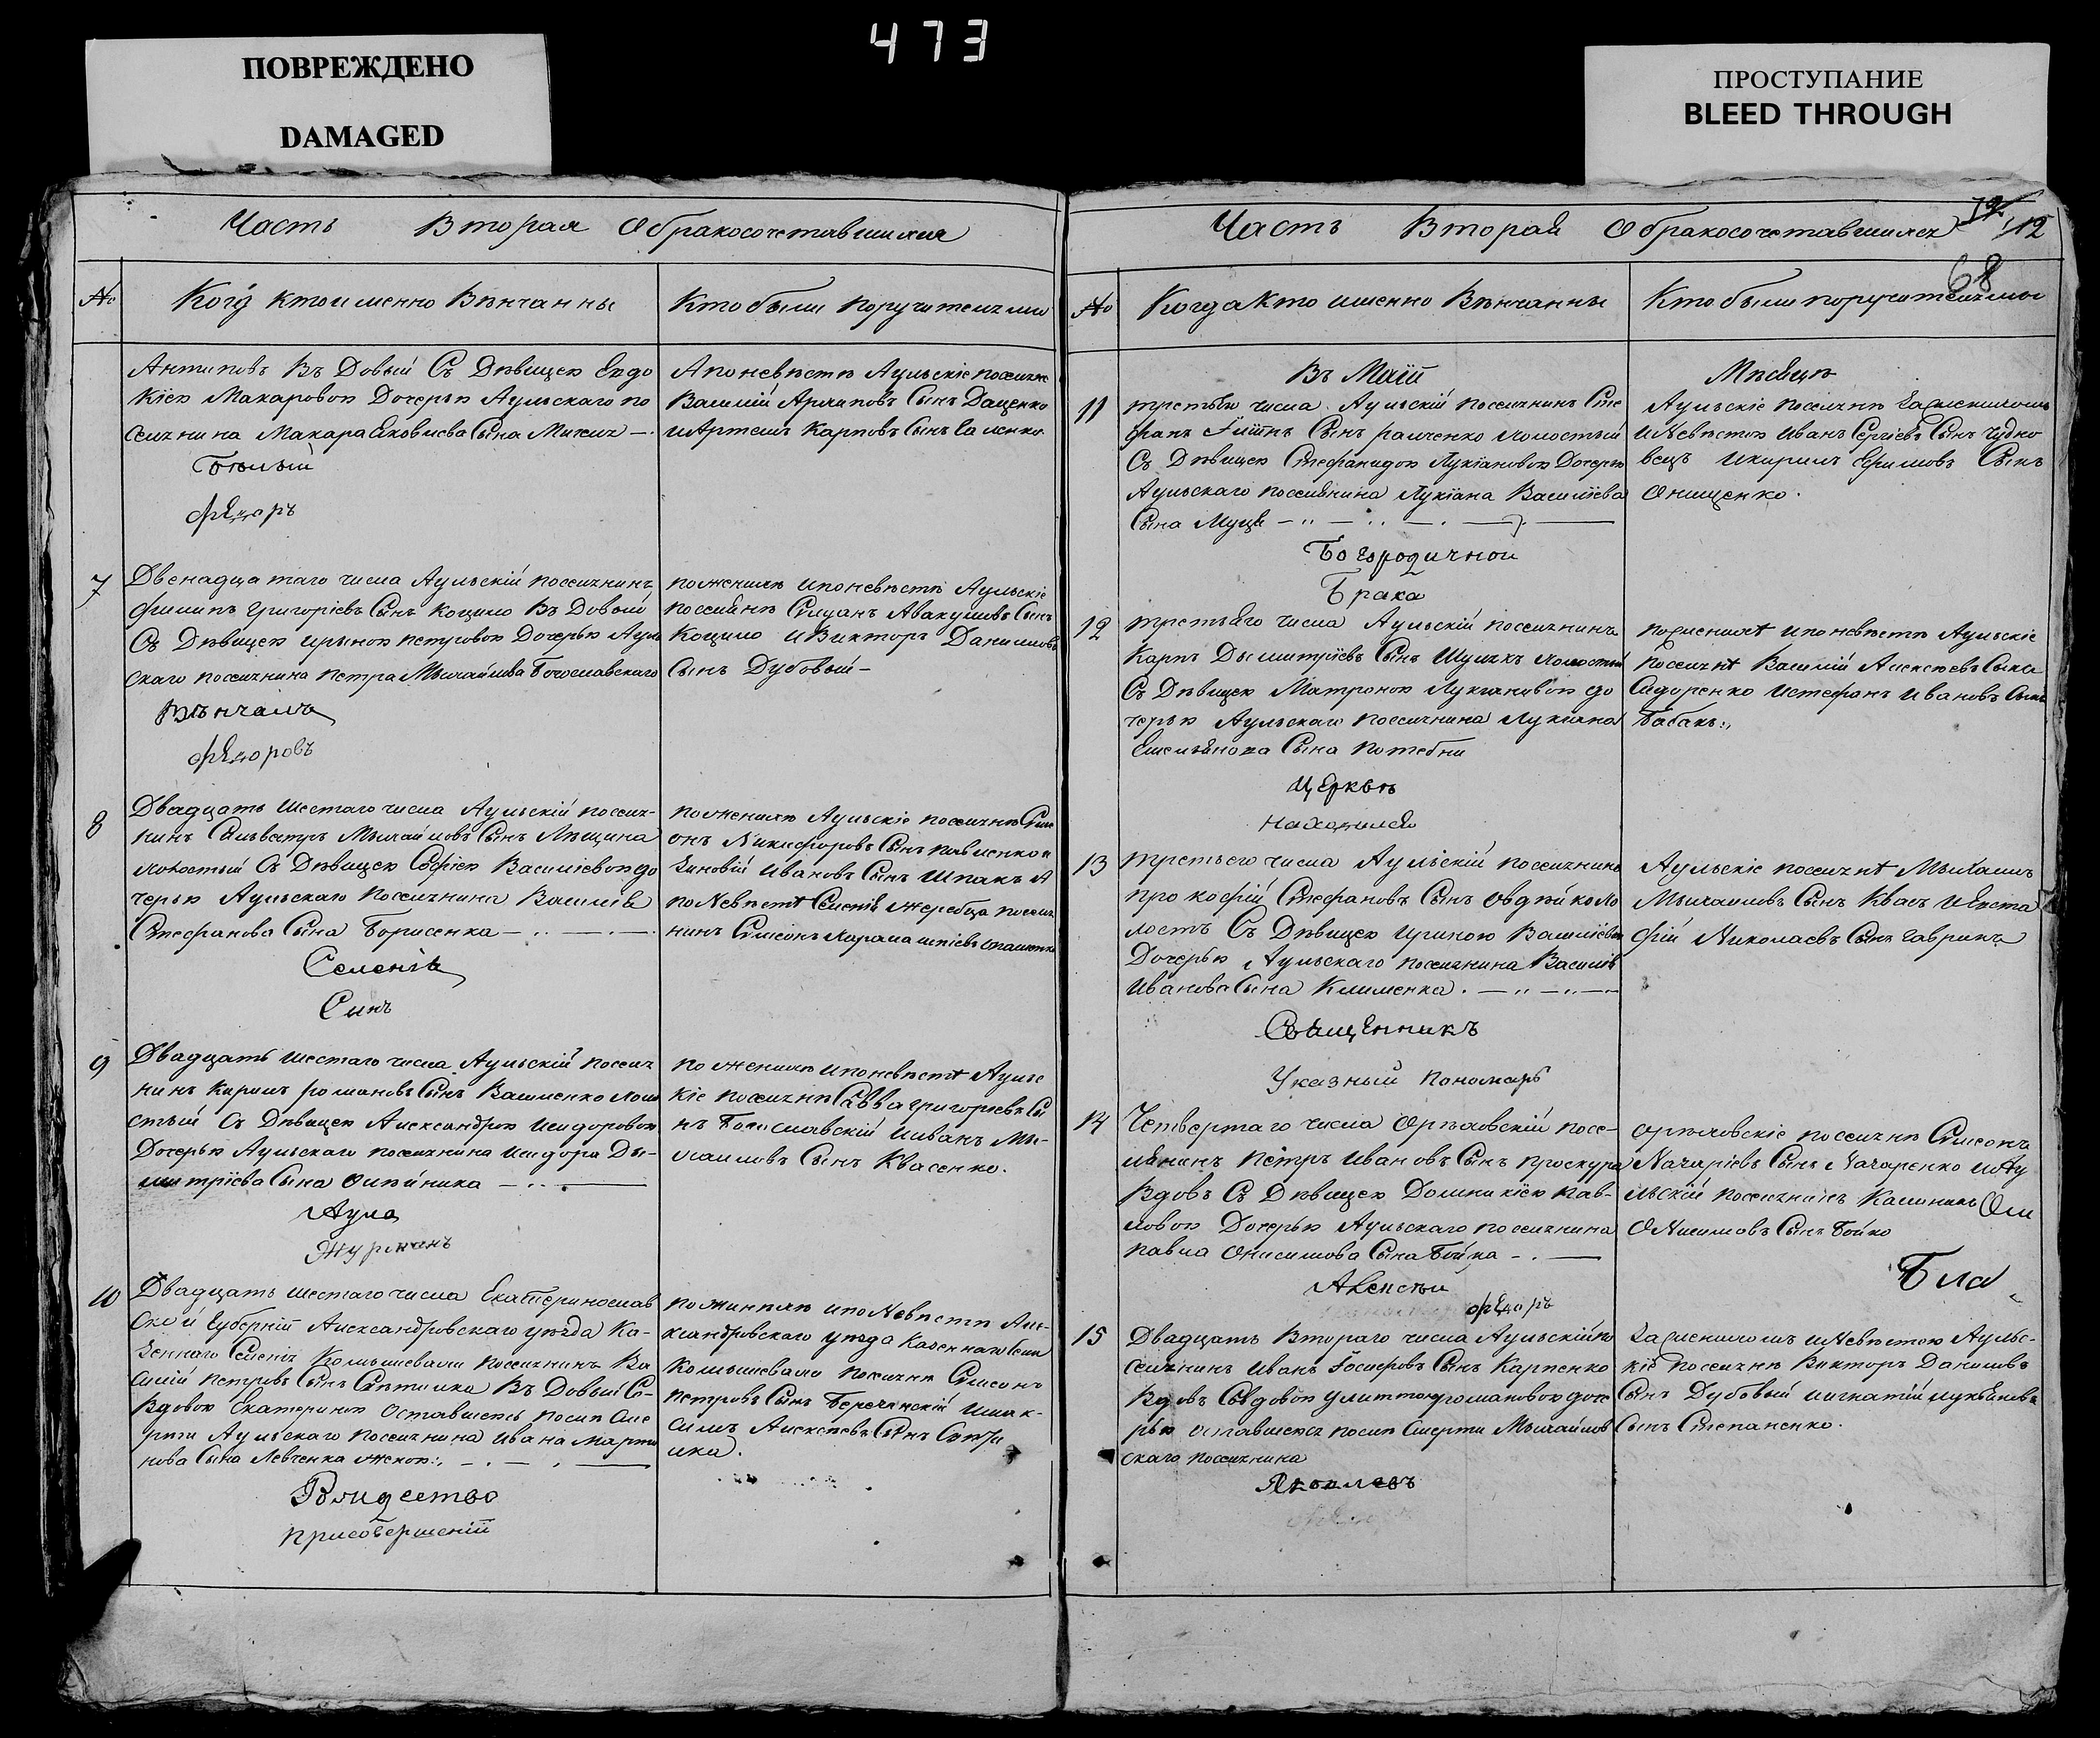 473
ПОВРЕЖДЕНО
DAMAGED
ПРОСТУПАНИЕ
BLEED THROUGH
Часть Вторая Обракосочетавшихся
№ Когд ктоименно Вѣнчанны
Ктобыли поручителями
Антиповъ Въ Довый Съ Дѣвицею Евдо
кіею Макаровою Дочерью Аульскаго по
селянина Макара Яковлева Сына
Бѣлый
фЕдоръ
Апоневѣстѣ Аульскіе поселяне
Василій Архиповъ Сынъ Даценко
иАртемъ Карповъ Сынъ
7 Двенадцатаго числа Аульскій поселянинъ
филипъ григоріевъ Сынъ коцило Въ Довый
Съ Дѣвицею ириною петровою Дочерью Ауль
скаго поселянина петра Михайлова Богославскаго
Вѣнчалъ
фЕдоровъ
пожених ипоневѣстѣ Аульскіе
поселянѣ Авакумовъ Сынъ
Коцило иВикторъ Даниловъ
Сынъ Дубовый
8 Двадцать шестаго числа Аульскій поселя-
нинъ Сильвестръ Михайловъ Сынъ Лѣщина
холостый Съ Дѣвицею Софіею Василіевою до
черью Аульскаго Поселянина Василія
Стефанова Сына Борисенка
Селенія
Синъ
пожених Аульскіе поселянѣ Сим
онъ Никифоровъ Сынъ павленко и
Зиновій Ивановъ Сынъ Шпакъ А
поНевѣстѣ Селенія жеребца поселя
нинъ Симеонъ
9 Двадцать шестаго числа Аульскій поселя
нинъ кирилъ романовъ Сынъ Василенко холо
стый Съ Дѣвицею Александрою исидоровою
Дочерью Аульскаго поселянина исидора Ди-
митріева Сына Олѣйника
Аула
Журманъ
по жених ипоневѣстѣ Аульс
кіе поселянѣ Савва григоріевъ Сы
нъ Богославскій иИванъ Ми-
хайловъ Сынъ Квасенко.
10 Двадцать шестаго числа Екатеринослав
Ской губерніи Александровскаго уѣзда Ка-
зеннаго Селенія Комышевахи поселянинъ Ва
силій петровъ Сынъ Свѣтилка Въ Довый Съ-
Вдовою Екатериною Оставшеюсь послѣ Сме
рти Аульскаго Поселянина Ивана Марты
нова Сына Левченка женою
Рождество
присовершеніи
по жених ипоНевѣстѣ Алек-
ксандровскаго уѣзда Казеннаго Селен
Комышевахи поселянѣ Симеонъ
петровъ Сынъ иМак-
симъ Алексѣевъ Сынъ Свѣти
лка.
Часть Вторая Обракосочетавшихся
112
68
№ КогдаКто именно Вѣнчанны
Ктобыли поручителями
Въ Маій Мѣсяцѣ
11 третьяго числа Аульскій поселянинъ Сте
фанъ Сынъ холостый
Съ Дѣвицею Стефанидою Лукіановою Дочерью
Аульскаго поселянина Лукіана Василіева
Сына Муцы
Богородичной
Брака
Аульскіе поселянѣ
иНевѣстою Иванъ Сергіевъ Сынъ Чудно
вецъ икирилъ Ефимовъ Сынъ
Онищенко.
12 третьяго числа Аульскій поселянинъ
Карпъ Дымитріевъ Сынъ Шулякъ холостый
Съ Дѣвицею Матроною Лукіановою до
черью Аульскаго поселянина Лукіана
Емельянова Сына потебни
цЕрквѣ
находился
поженихѣ ипоневѣстѣ Аульскіе
поселянѣ Василій Алексѣевъ Сынъ
Сидоренко иСтефанъ Ивановъ Сынъ
Бабакъ
13 третьего числа Аульскій поселянинъ
прокофій Стефановъ Сынъ Овдѣйко хо
лостъ Съ Дѣвицею ириною Василіевою
Дочерью Аульскаго поселянина Василія
Иванова Сына Клименка.
СвящЕнникъ
Указный пономарь
Аульскіе поселянѣ Михаилъ
Михаиловъ Сынъ Квасъ иЕвста
фій Николаевъ Сынъ гаврика
14 Четвертаго числа Орѣховскій посе-
лянинъ пЕтръ Ивановъ Сынъ проскура
Вдовъ Съ Дѣвицею Домникіею пав-
ловою Дочерью Аульскаго поселянина
павла Онисимова Сына Бойка
Алексѣй
фЕдоръ
Орѣховскіе поселянѣ Симеонъ
Захаріевъ Сынъ Захаренко иАу
льскій поселянинъ Калиникъ
Онисимовъ Сынъ Бойко
Бла
15 Двадцать Втораго числа Аульскій по
селянинъ иванъ Іосифовъ Сынъ Карпенко
Вдовъ СоВдовою романовою доче
рью оставшеюся послѣ Смерти Михайлов
скаго поселянина
Яковлевъ
Заженихомъ иНевѣстою Аульс-
кіе поселянѣ Викторъ Даниловъ
Сынъ Дубовый иигнатій лукьяновъ
Сынъ Степаненко.